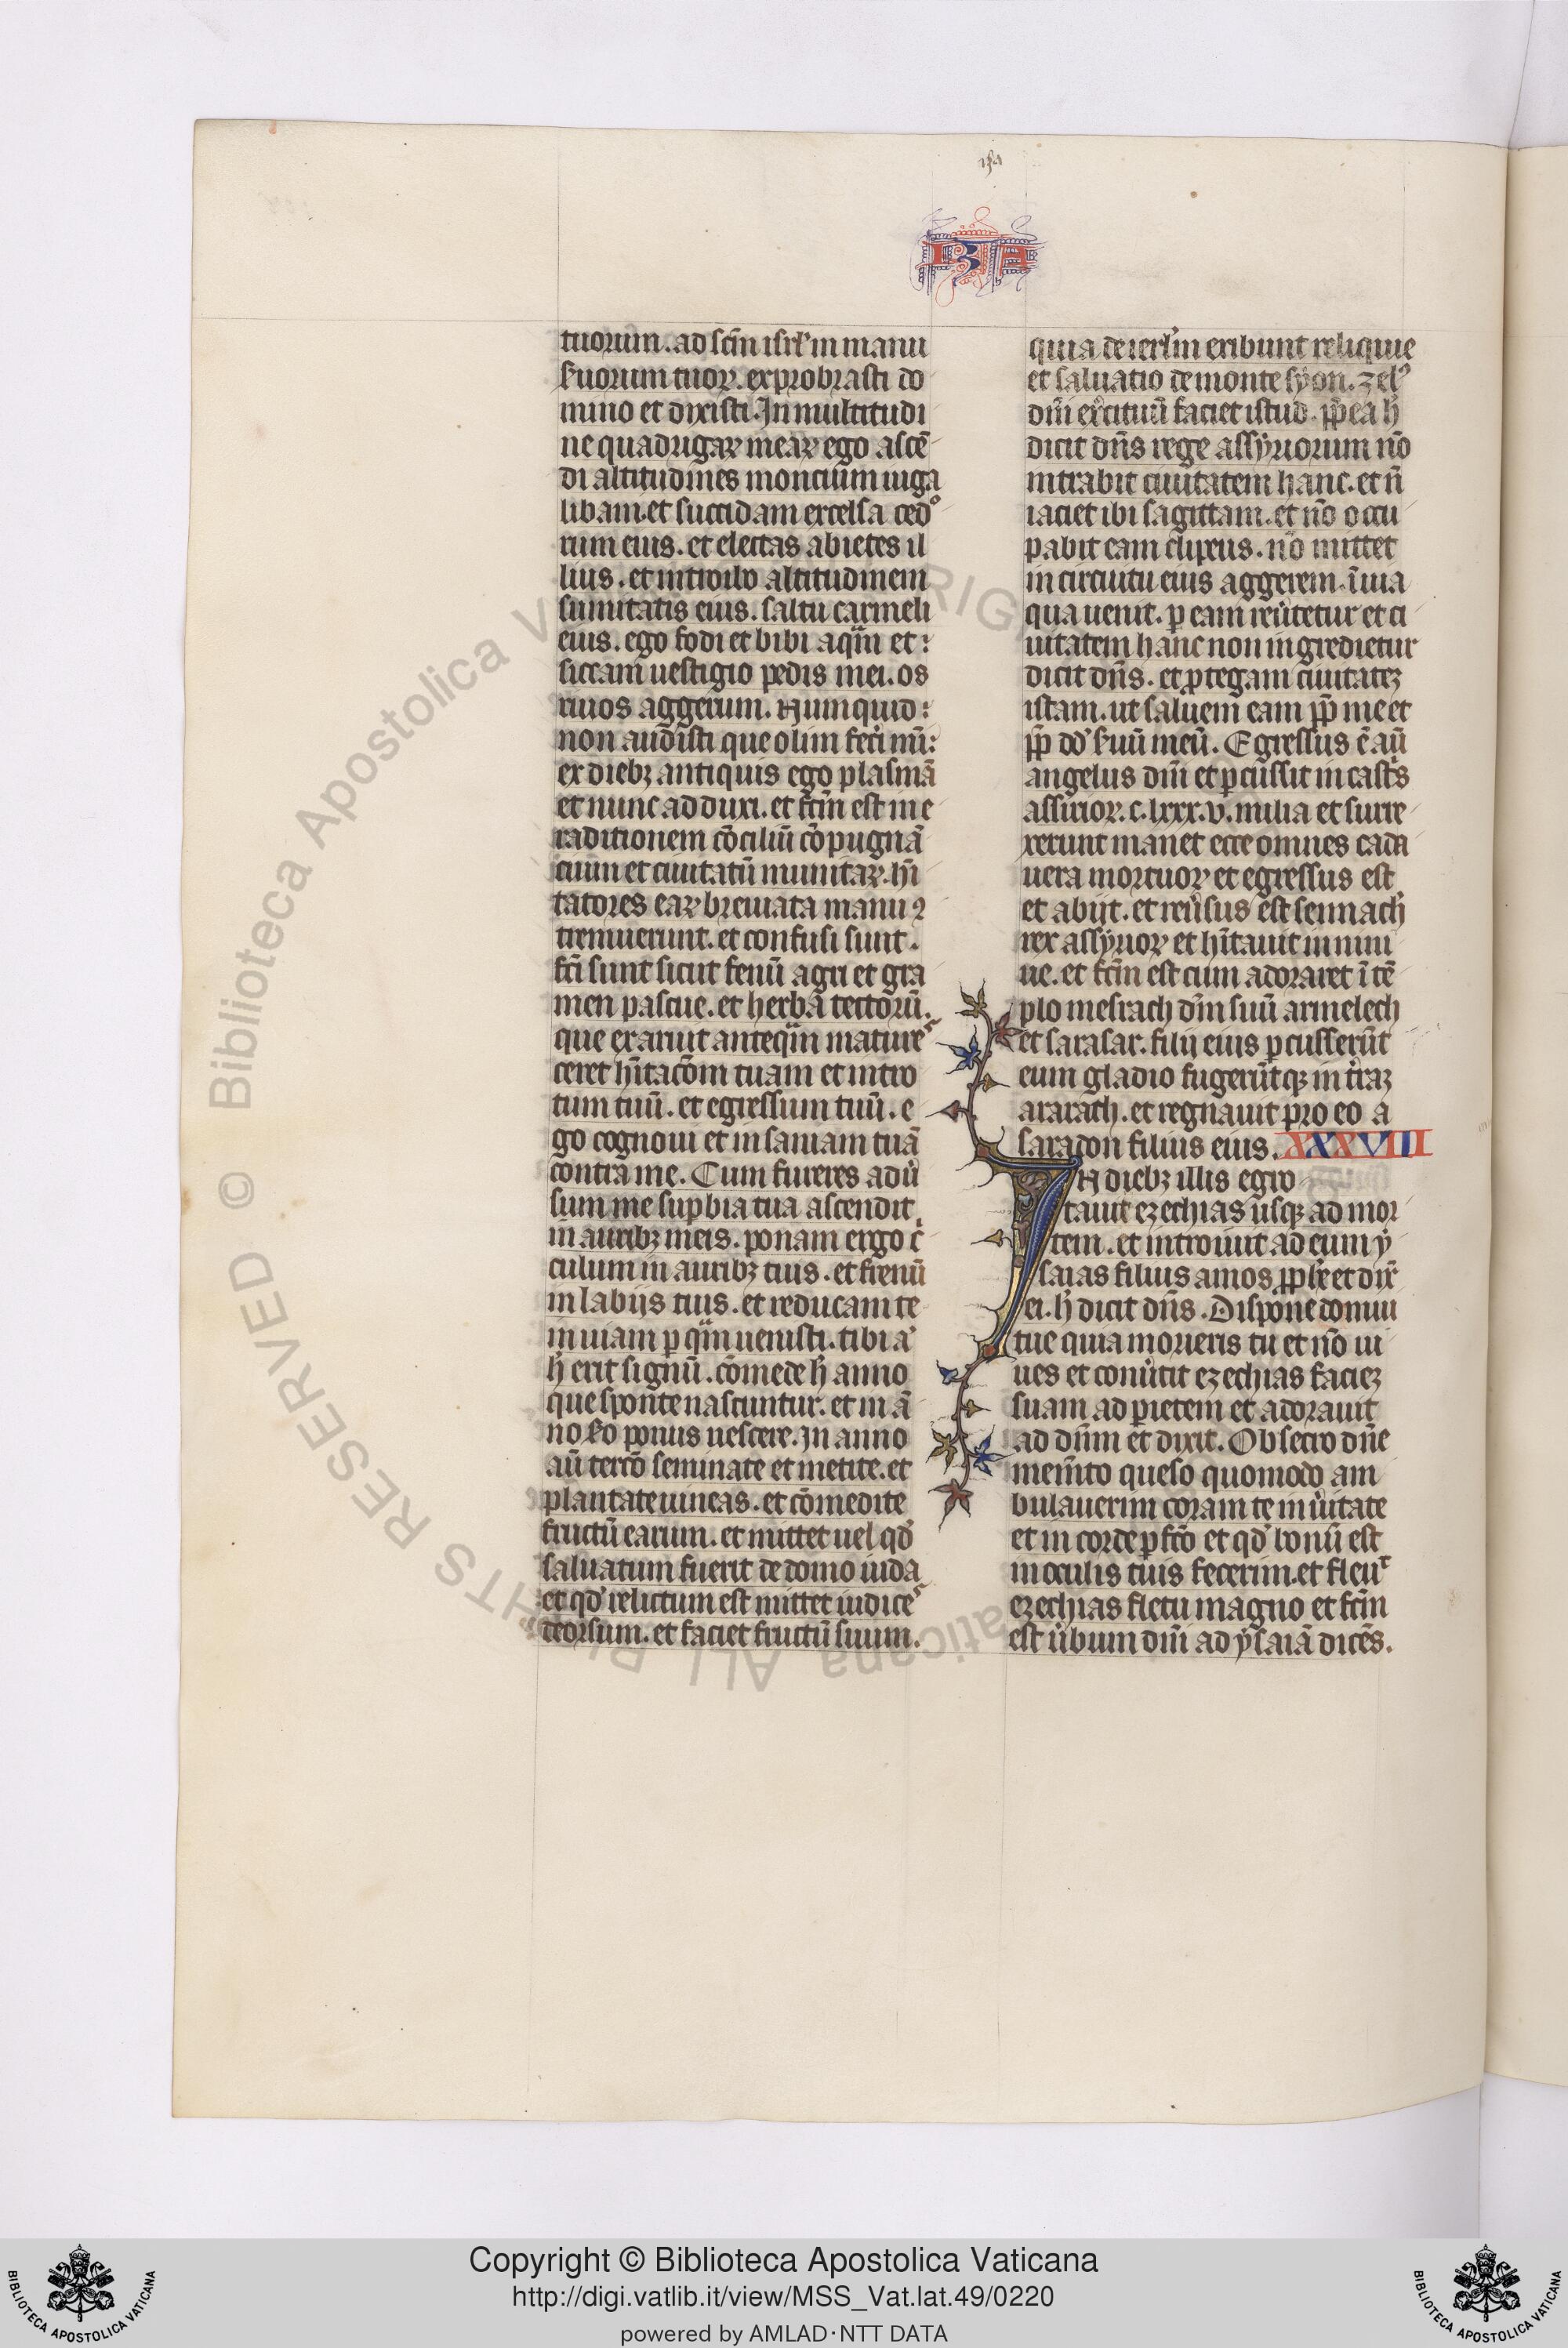 isa
ISA
tuorum. ad scm̄ isrl̓ in manu
s̓uorum tuoꝝ. exprobrasti do
mino et dixisti. In multitudi
ne quadrigaꝝ meaꝝ ego ascē
di altitudines moncium iuga
libani. et succidam excelsa cedͦ
rum eius. et electas abietes il
lius. et introibo altitudinem
sumitatis eius. saltū carmeli
eius. ego fodi et bibi aqͣm et
siccaui uestigio pedis mei. os
riuos aggerum. Numquid
non audisti que olim feci mī:
ex diebꝫ antiquis ego plasmā
et nunc adduxi. et fcm̄ est in e
raditionem cōciliū cōpugnā
cium et ciuitatū munitaꝝ. hī
tatores eaꝝ breuiata manu ꝯ
tremuerunt. et confusi sunt.
fcī sunt sicut fenū agri et gra
men pascue. et herba tectoꝝū.
que exaruit anteqͣm mature
ceret hītacōm tuam et intro
tum tuū. et egressum tuū. e
go cognoui et insaniam tuā
contra me. Cum fureres adu̓
sum me suꝑbia tua ascendit
in auribꝫ meis. ponam ergo c̓
culum in auribꝫ tuis. et frenū
in labijs tuis. et reducam te
in uiam ꝑ qͣm uenisti. tibi a̓
h̓ erit signū. cōmede h̓ anno
que sponte nascuntur. et in ā
no s̓o pomis uescere. In anno
aū tercō seminate et metite. et
plantate uineas. et cōmedite
fructū earum. et mittet uel qd̓
saluatum fuerit de domo iuda
et qd̓ relictum est mittet iudice
deorsum. et faciet fructū suum.
quia de ierl̓m exibunt reliquie
et saluatio de monte sẏon. zelꝰ
dnī exc̓ituū faciet istud. ꝓp̄ ea h̓
dicit dn̄s rege assẏriorum nō
intrabit ciuitatem hanc. et n̄
iaciet ibi sagittam. et nō occu
pabit eam clipeus. nō mittet
in circuitu eius aggerem. ī uia
qua uenit. ꝑ eam reu̓tetur et ci
uitatem hanc non ingredietur
dicit dn̄s. et ꝓtegam ciuitateꝫ
istam. ut saluem eam ꝓp̄ me et
ꝓp̄ dd̓ s̓uū meū. Egressus ē aū
angelus dnī et ꝑcussit in cast̓s
assirioꝝ. c. lxxx. v. milia et surre
xerunt mane t̓ ecce omnes cada
uera mortuoꝝ et egressus est
et abijt. et reu̓sus est sennach̓
rex assẏrioꝝ et hītauit in nini
ue. et fcm̄ est cum adoraret ī tē
plo mesrach dm̄ suū armelech
et sarasar. filij eius ꝑcusserūt
eum gladio fugerūtqꝫ in t̓raꝫ
ararath. et regnauit pro eo a
saradon filius eius. XXXVIII
IN diebꝫ illis egro
tauit ezechias usqꝫ ad mor
tem. et introiuit ad eum ẏ
saias filius amos ꝓph̄e et dix̓
ei. h̓ dicit dn̄s. Dispone domui
tue quia morieris tu et nō ui
ues et conu̓tit ezechias facieꝫ
suam ad ꝑietem et adorauit
ad dn̄m et dixit. Obsecro dn̄e
mem̄to queso quomodo am
bulauerim coram te in u̓itate
et in corde ꝑfcō et qd̓ bonū est
in oculis tuis fecerim. et fleuͭ
ezechias fletu magno et fcm̄
est u̓bum dnī ad ẏsaiā dicēs.
© Biblioteca Apostolica Vaticana ALL RIGHTS RESERVED
BIBLIOTECA APOSTOLICA VATICANA
Copyright © Biblioteca Apostolica Vaticana
http://digi.vatlib.it/view/MSS_Vat.lat.49/0220
powered by AMLAD·NTT DATA
BIBLIOTECA APOSTOLICA VATICANA